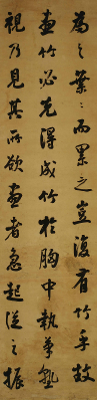 為之葉葉而累之豈復有竹乎故
畫竹必先得成竹於胸中執筆熟
視乃見其所欲畫者急起從之振